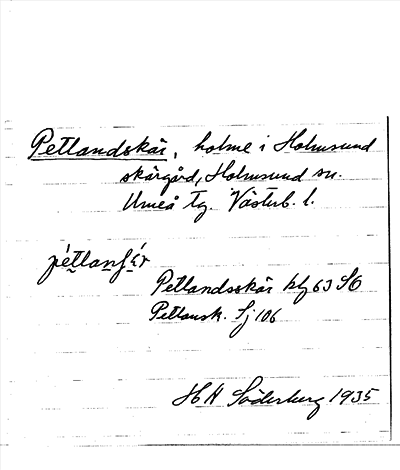 Petlandskär, holme i Holmsund
skärgård, Holmsund sn.
Umeå tg. Västerb. l.
pétlanʃér
Petlandsskär kbl 63 SO
Petlansk. Sj 106
H H Söderberg 1935